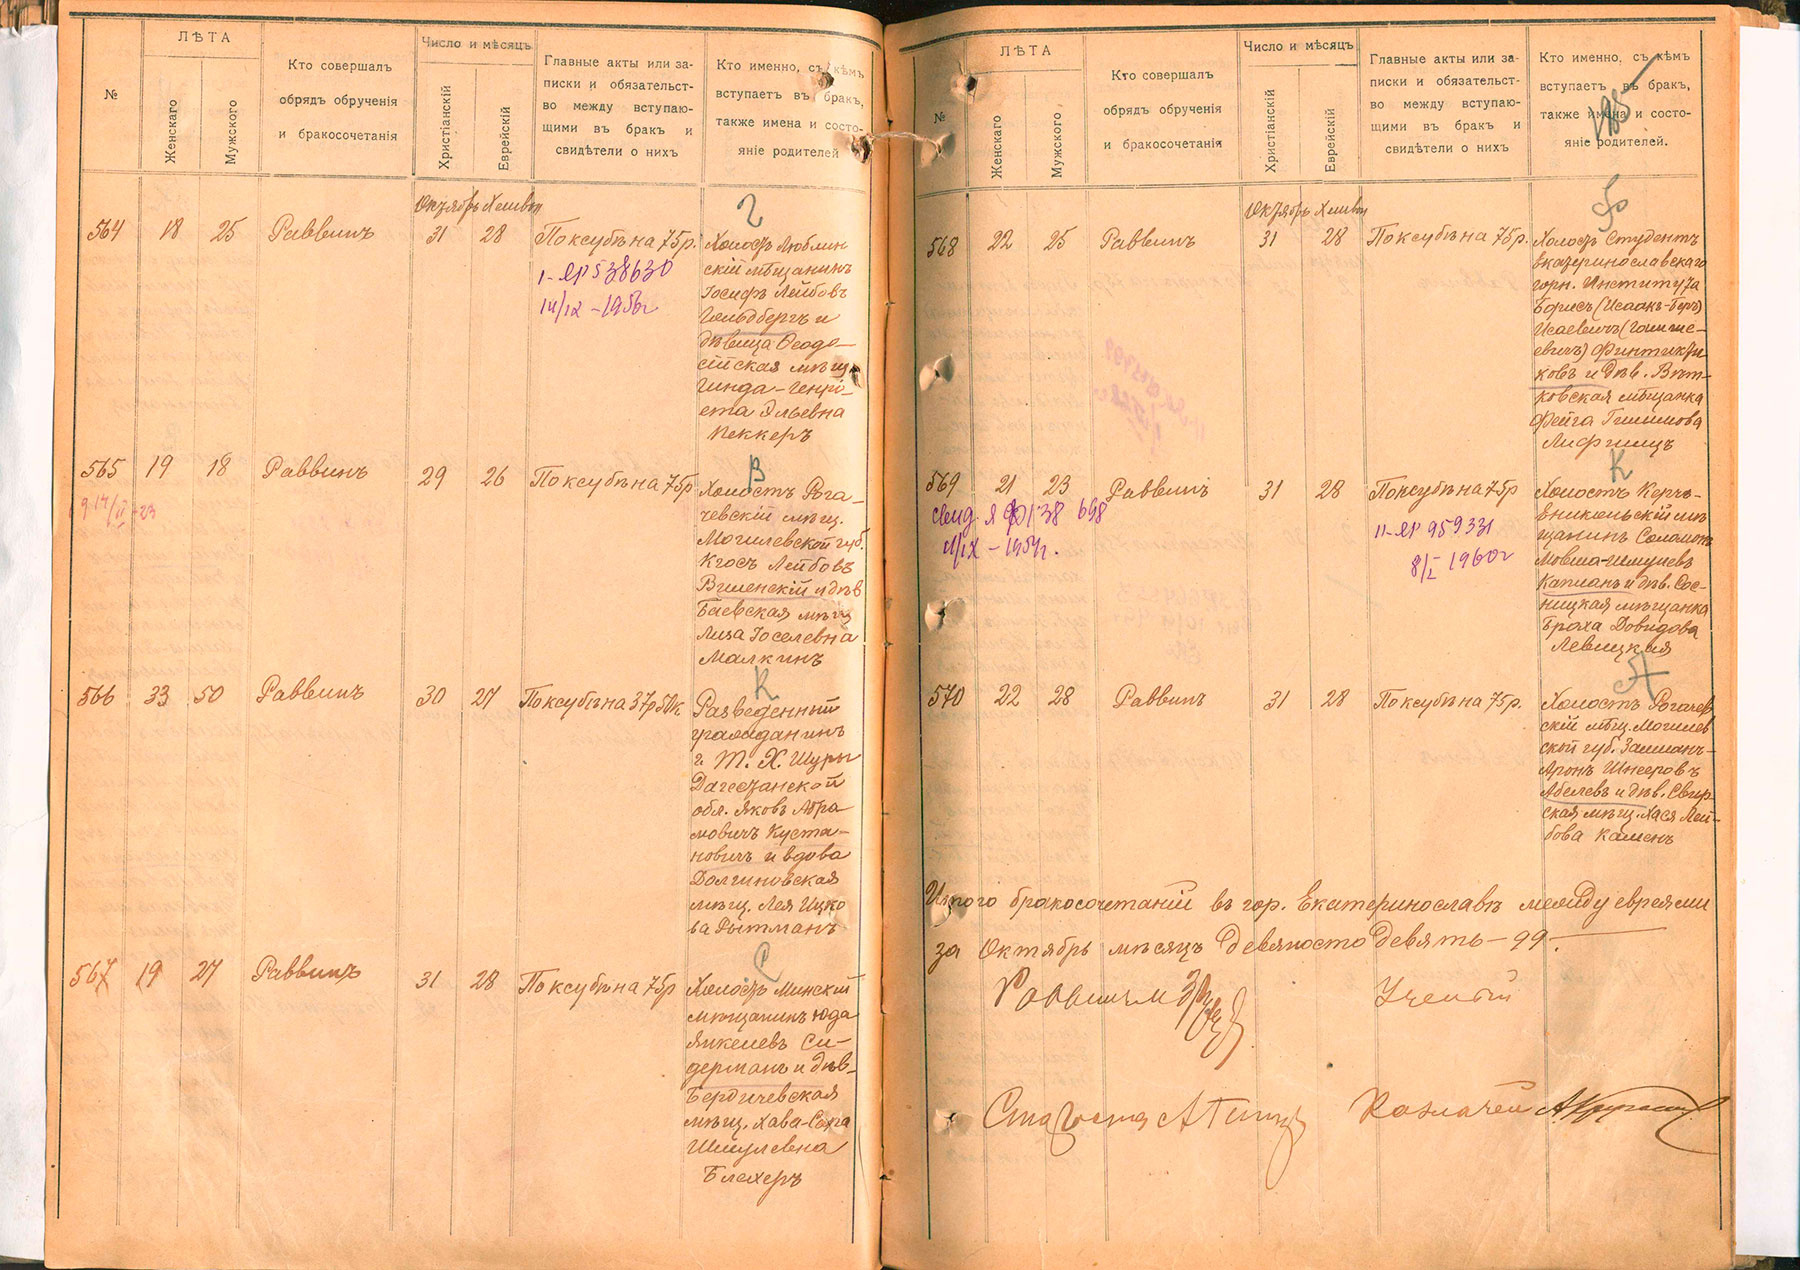 №
ЛѢТА
Женскаго
Мужского
Кто совершалъ
обрядъ обрученія
и бракосочетанія
Число и мѣсяцъ
Христіанскій
Еврейскій
Главные акты или за-
писки и обязательст-
во между вступаю-
щими въ бракъ и
свидѣтели о нихъ
Кто именно, съ кѣмъ
вступаетъ въ бракъ,
также имена и состо-
яніе родителей
Октябрь Хешвон
564 18 25 Раввинъ 31 28 По ксубѣ на 75р.
1-ЯР 538630
14/IX - 1956г
Г
Холостъ Люблин
скій мѣщанинъ
Іосифъ Лейбовъ
Гольдбергъ и
дѣвица Ѳеодо-
сійская мѣщ.
Гинда-Генрі-
ета Эльевна
Пеккеръ
565 19 18 Раввинъ 29 26 По ксубѣ на 75р
В
Холостъ Рога-
чевскій мѣщ.
Могилевской губ.
Лейбовъ
Виленскій и дѣв
Баевская мѣщ
Лиза Іоселевна
Малкинъ
566 33 50 Раввинъ 30 27 По ксубѣ на 37р50к
К
Разведенный
гражданинъ
г. Т. Х. Шуры
Дагестанской
обл. Яковъ Абра
мовичъ Куста-
новичъ и вдова
Долгиновская
мѣщ. Лея Ицко
ва Рытманъ
567 19 27 Раввинъ 31 28 По ксубѣ на 75р
С
Холостъ Минскій
мѣщанинъ Юда
Янкелевъ Си-
дерманъ и дѣв-
Бердичевская
мѣщ. Хава-Сора
Шмулевна
Блехеръ
№
ЛѢТА
Женскаго
Мужского
Кто совершалъ
обрядъ обрученія
и бракосочетанія
Число и мѣсяцъ
Христіанскій
Еврейскій
Главные акты или за-
писки и обязательст-
во между вступаю-
щими въ бракъ и
свидѣтели о нихъ
Кто именно, съ кѣмъ
вступаетъ въ бракъ,
также имена и состо-
яніе родителей.
185
Октябрь Хешвон
568 22 25 Раввинъ 31 28 По ксубѣ на 75р.
Ф
Холостъ студентъ
Екатеринославскаго
горн. Института
Борисъ (Исаакъ-Беръ)
Исаевичъ
евичъ) Финтикти
ковъ и дѣв. Вѣт-
ковская мѣщанка
Фейга Гилимова
Лифшицъ
569 21 23 Раввинъ 31 28 По ксубѣ на 75р
698
11/IX - 1954г.
II-ЯР 959331
8/I 1960г
К
Холостъ Керчь-
Еникольскій мѣ
щанинъ Соломонъ
Мовша-Шмулевъ
Капланъ и дѣв. Сос-
ницкая мѣщанка
Броха Довидова
Левицкая
570 22 28 Раввинъ 31 28 По ксубѣ на 75р.
А
Холостъ Рогачев
скій мѣщ. Могилев
ской губ. Залманъ-
Аронъ Шнееровъ
Абелевъ и дѣв. Свир-
ская мѣщ. Хася Лей-
бова Каменъ
Итого бракосочетаній въ гор. Екатеринославѣ между евреями
за Октябрь мѣсяцъ девяносто девять - 99 -.
Раввинъ Ученый
Староста Казначей